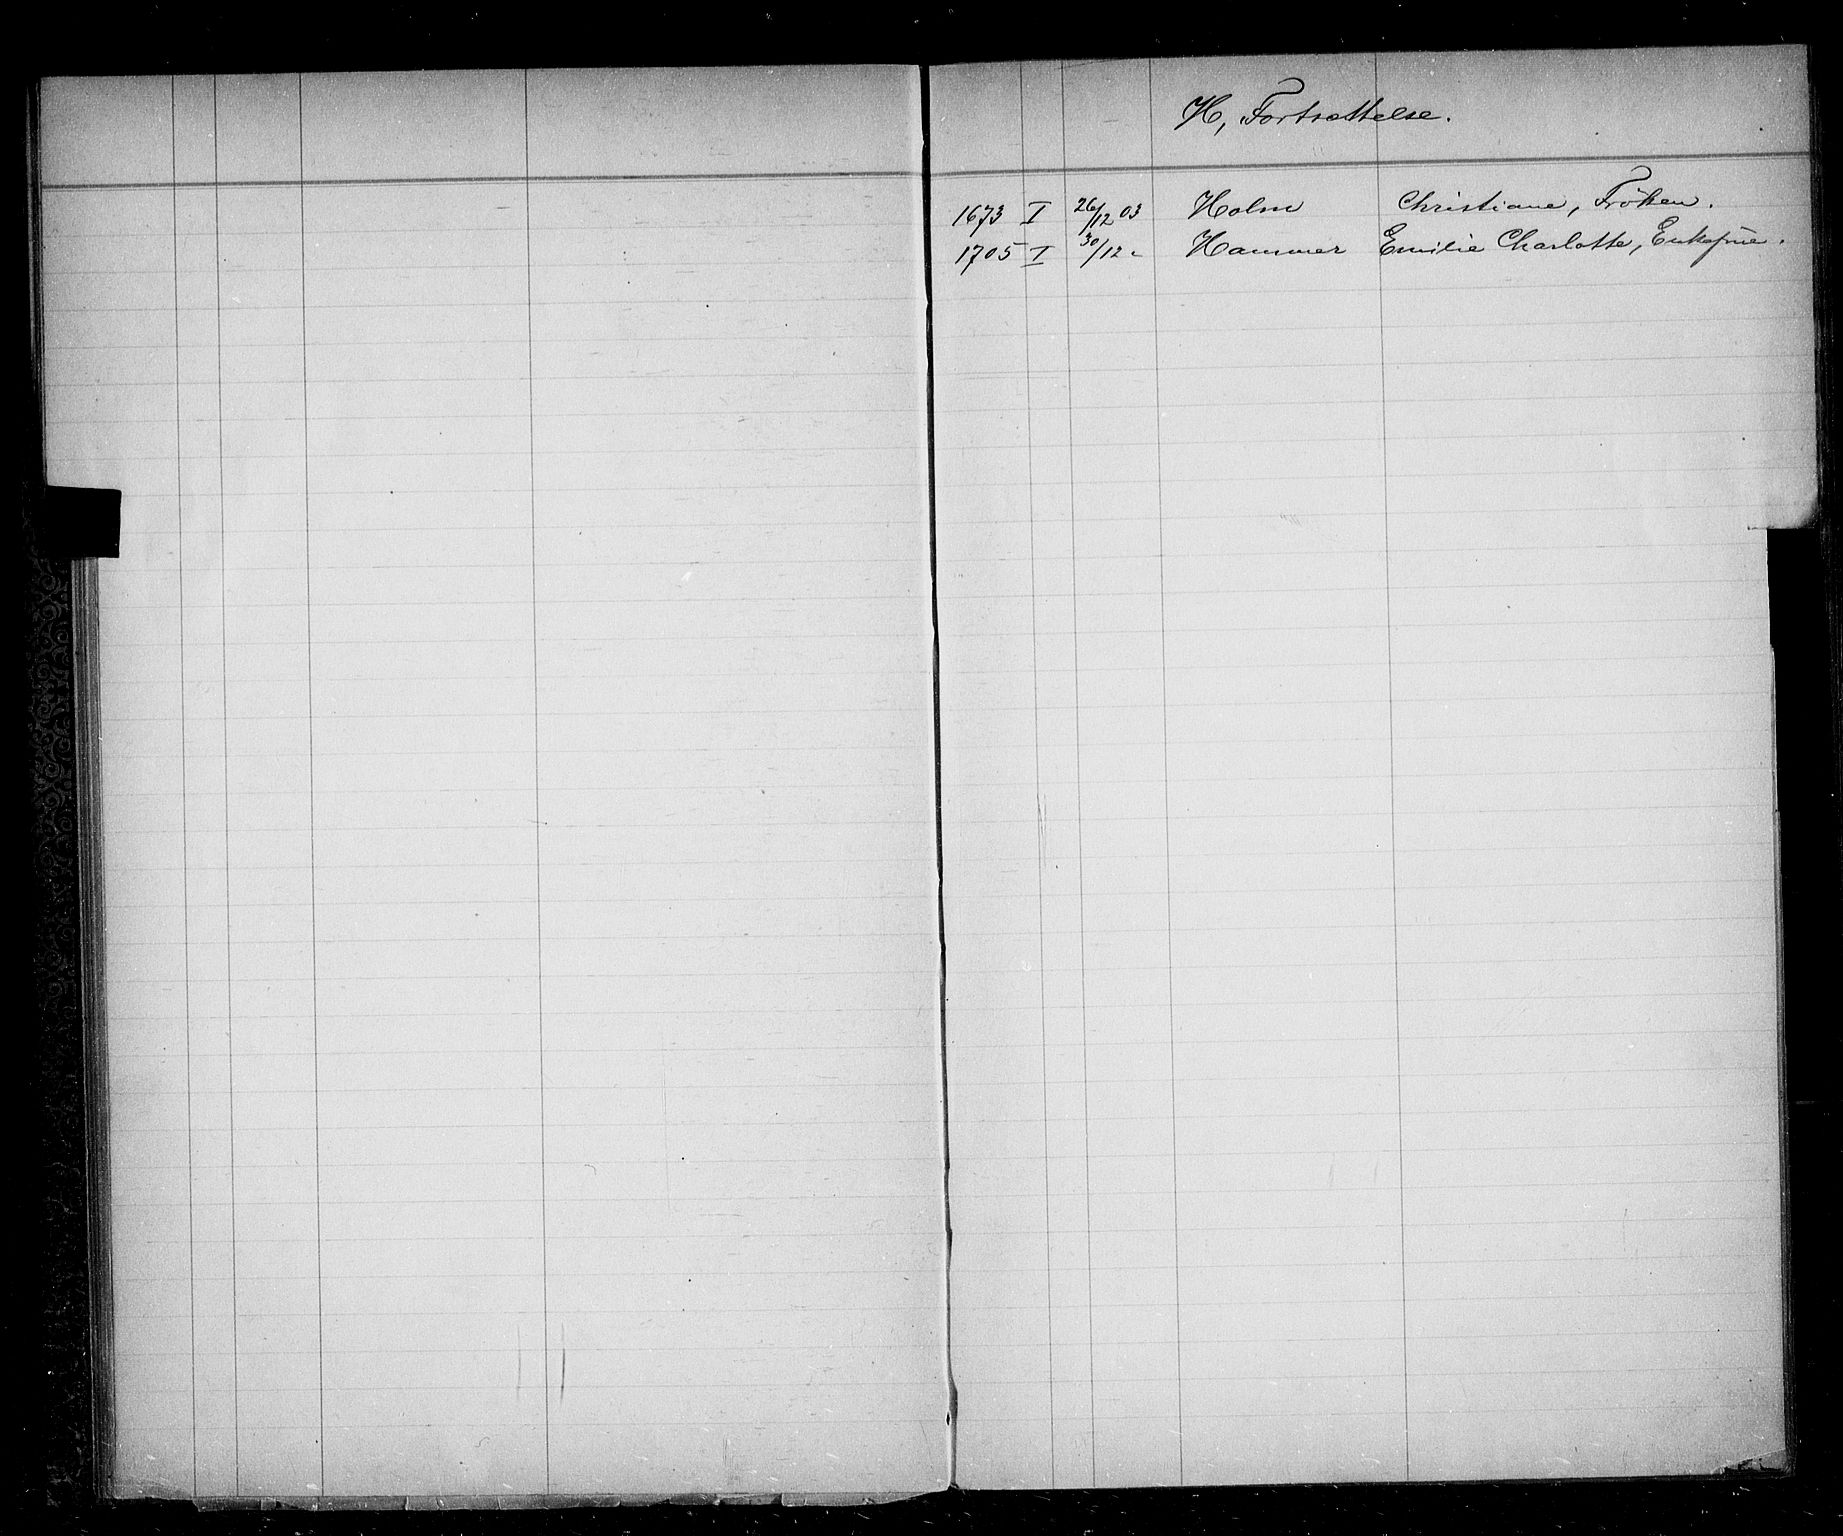 H, Fortsættelse.
1673 I 26/12 03 Holm Christiane, Frøken.
1705 I 30/12 " Hammer Emilie Charlotte, Enkefrue.